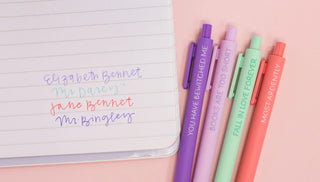 Elizabeth Bennet
Mr Darcy
Jane Bennet
Mr Bingley
YOU HAVE BEWITCHED ME
BOOKS ARE TOO SHORT
FALL IN LOVE FOREVER
MOST ARDENTLY